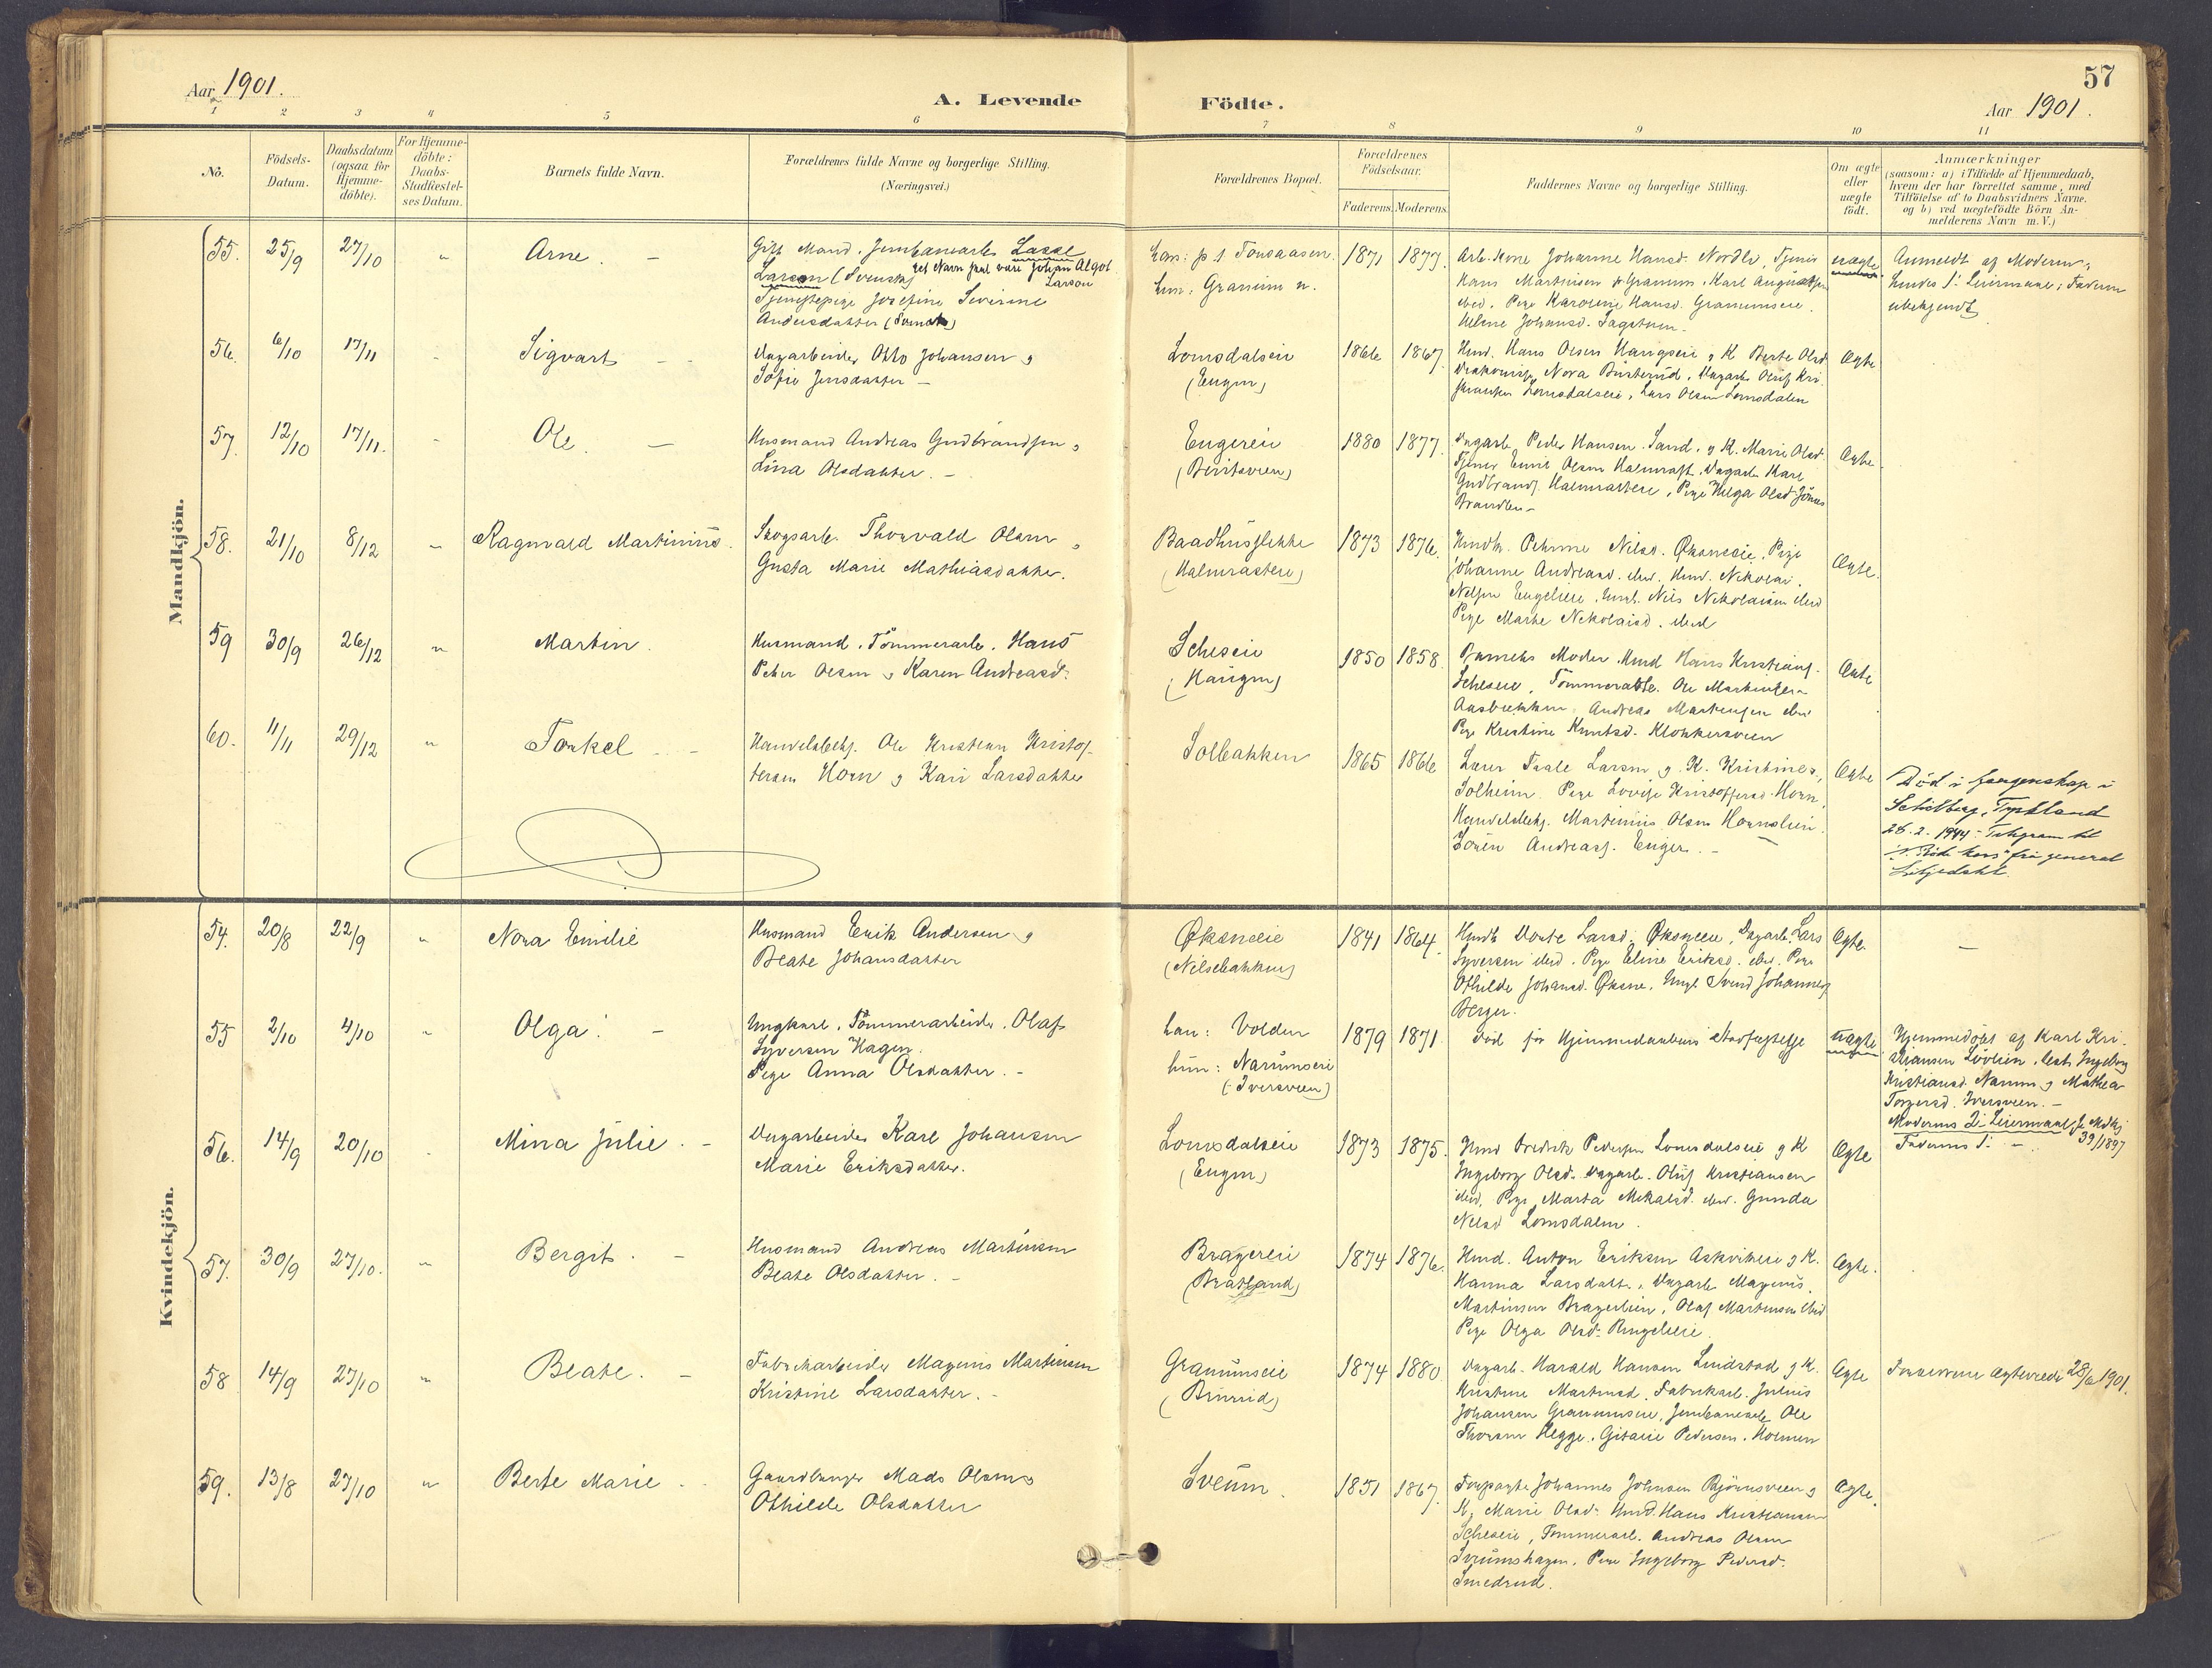 57
Aar 1901.
A. Levende Födte.
Aar 1901.
1 2 3 4 5 6 7 8 9 10 11
No.
Födsels-Datum.
Daabsdatum (ogsaa for Hjemme-döbte).
For Hjemme-döbte: Daabs-Stadfæstel-ses Datum.
Barnets fulde Navn.
Forældrenes fulde Navne og borgerlige Stilling.
(Næringsvei.)
Forældrenes Bopæl.
Forældrenes Födselsaar.
Faderens. Moderens.
Faddernes Navne og borgerlige Stilling.
Om ægte eller uægte födt.
Anmærkninger
(saasom: a) i Tilfælde af Hjemmedaab,
hvem der har forrettet samme, med
Tilföielse af to Daabsvidners Navne.
og b) ved uægtefödte Börn An-
melderens Navn m. V.)
Mandkjön.
55. 25/9 27/10 " Arne. —
Gift Mand. Jernbanearb. Lasse
Larson (Svensk) ret Navn skal være Johan Algot Larson
Tjenestepige Josefine Severine
Andersdatter (Svensk)
han: p. t. Tonsaasen.
hun: Granum n.
1871 1877.
Arb. Kone Johanne Hansd. Nordlv, Tjener
Hans Martinsen Granum. Karl
ibid. Pige Karoline Hansd. Granumseie.
Helene Johansd. Fagertun.
uægte
Anmeldt af Moderen;
hendes 1ste Leiermaal; Faderen
ubekjendt
56. 6/10 17/11 " Sigvart —
Dagarbeider Otto Johansen og
Sofie Jensdatter —
Lomsdalseie
(Engen)
1866 1867.
Husm. Hans Olsen Haugseie og K Berte Olsd.
Nora Busterud, Dagarb. Oluf Kri-
stiansen Lomsdalseie, Lars Olsen Lomsdalen
Ægte
57. 12/10 17/11. " Ole. —
Husmand Andreas Gudbrandsen og
Lina Olsdatter. —
Engereie
(Beritsveen)
1880 1877.
Dagarb. Peder Hansen Sand. og K. Marie Olsd.
Tjener Emil Olsen Halmrast, Dagarb. Karl
Gudbrands. Halmrasteie, Pige Helga Olsd.
Ægte
58. 21/10 8/12 " Ragnvald Martinius.
Skogsarb. Thorvald Olsen og
Gusta Marie Mathiasdatter.
Baadhusflekke
(Halmrasteie)
1873 1876.
Husmk. Nilsd. Øksneeie, Pige
Johanne Andreasd. ibid. Husm. Nikolai
Nilsen Engeleie, Ungk. Nils Nikolaisen ibid
Pige Marthe Nikolaisd. ibid
Ægte.
59 30/9 26/12 " Martin.
Husmand, Tömmerarb. Hans
Peter Olsen og Karen Andreasd.
Scheseie
(Haugen)
1850 1858.
Barnets Moder. Husmd Hans Kristians.
Scheseie, Tömmerarb. Ole Martinsen
Aasbrekken, Andreas Martinsen ibid
Pige Kristine Knutsd. Klokkersveen
Ægte
60. 11/11 29/12 " Torkel —
Handelsbetj. Ole Kristian Kristof-
fersen Horn og Kari Larsdatter
Solbakken
1865 1866
Lærer Taale Larsen og K. Kristine,
Solheim. Pige Lovise Kristoffersd. Horn,
Handelsbetj. Martinius Olsen Hornslien.
Sören Andreas. Enger. —
Ægte
Död i fangenskap i
Schildberg, Tyskland
28.2.1944. Telegram til
"Röde kors" fra general
Kvindekjön.
54. 20/8 22/9 " Nora Emilie
Husmand Erik Andersen og
Beate Johansdatter
Øksneeie
(Nilsebakken)
1841 1864.
Husmk Dorte Larsd. Øksneeie, Dagarb. Lars
Syversen ibid. Pige Eline Eriksd. ibid. Pige
Othilde Johansd. Øksne. Ungk. Svend Johannes.
Berger.
Ægte. —
55 2/10 4/10 " Olga. —
Ungkarl, Tömmerarbeider. Olaf
Syversen Hagen.
Pige Anna Olsdatter. —
han: Volden
hun: Narumseie
(Iversveen)
1879 1871.
Död för Hjemmedaabens Stadfæstelse
uægte
Hjemmedöbt af Karl Kri-
stiansen Lövlien, test. Ingeborg
Kristiansd. Narum og Mathea
Torgersd. Iversveen. —
Moderens 2det Leiermaal,
39/1897
Faderens 1ste —
56. 14/9 20/10 " Mina Julie. —
Dagarbeider Karl Johansen
Marie Eriksdatter.
Lomsdalseie
(Engen)
1873 1875.
Husm Fredrik Pedersen Lomsdalseie og K
Ingeborg Olsd. Dagarb. Oluf Kristiansen
ibid, Pige Marta Mikalsd. ibid. Gunda
Nilsd Lomsdalen.
Ægte
57. 30/9 27/10. " Bergit. —
Husmand Andreas Martinsen
Beate Olsdatter. —
Bragereie
(Bratland)
1874 1876.
Husmd. Anton Eriksen Askvikeie og K.
Hanna Larsdatt., Dagarb. Magnus
Martinsen Bragerlien, Olaf Martinsen ibid
Pige Olga Olsd. Ringelieie.
Ægte.
58 14/9 27/10 " Beate. —
Fabrikarbeider Magnus Martinsen
Kristine Larsdatter. —
Granumseie
(Brurud)
1874 1880
Dagarb. Harald Hansen Lindstad og K.
Kristine Martinsd. Fabrikarb. Julius
Johansen Granumseie, Jernbanearb. Ole
Thoresen Hegge. Pedersen. Holmen
Ægte
Forældrene ægteviede 28/6 1901.
59. 13/8 27/10 " Berte Marie.
Gaardbruger Mads Olsen og
Othilde Olsdatter
Sveum.
1851 1867.
Forpagter Johannes Johnsen Björnsveen og
K. Marie Olsd. Husmd. Hans Kristiansen
Scheseie, Tömmerarb. Andreas Olsen
Sveumshagen. Pige Ingeborg Pedersd.
Smedrud.
Ægte.